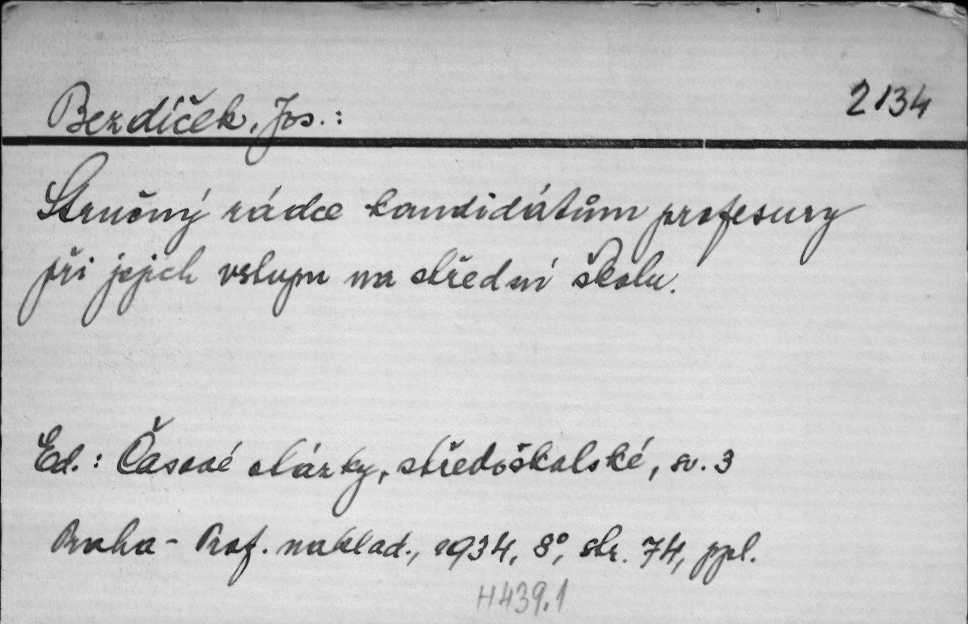 Bezdíček, Jos.: 2134
Stručný rádce kandidátům profesury
při jejich vstupu na střední školu.
Ed.: Časové otázky středoškolské, sv. 3
Praha - Prof. naklad., 1934, 8°, str. 74, ppl.
H439.1